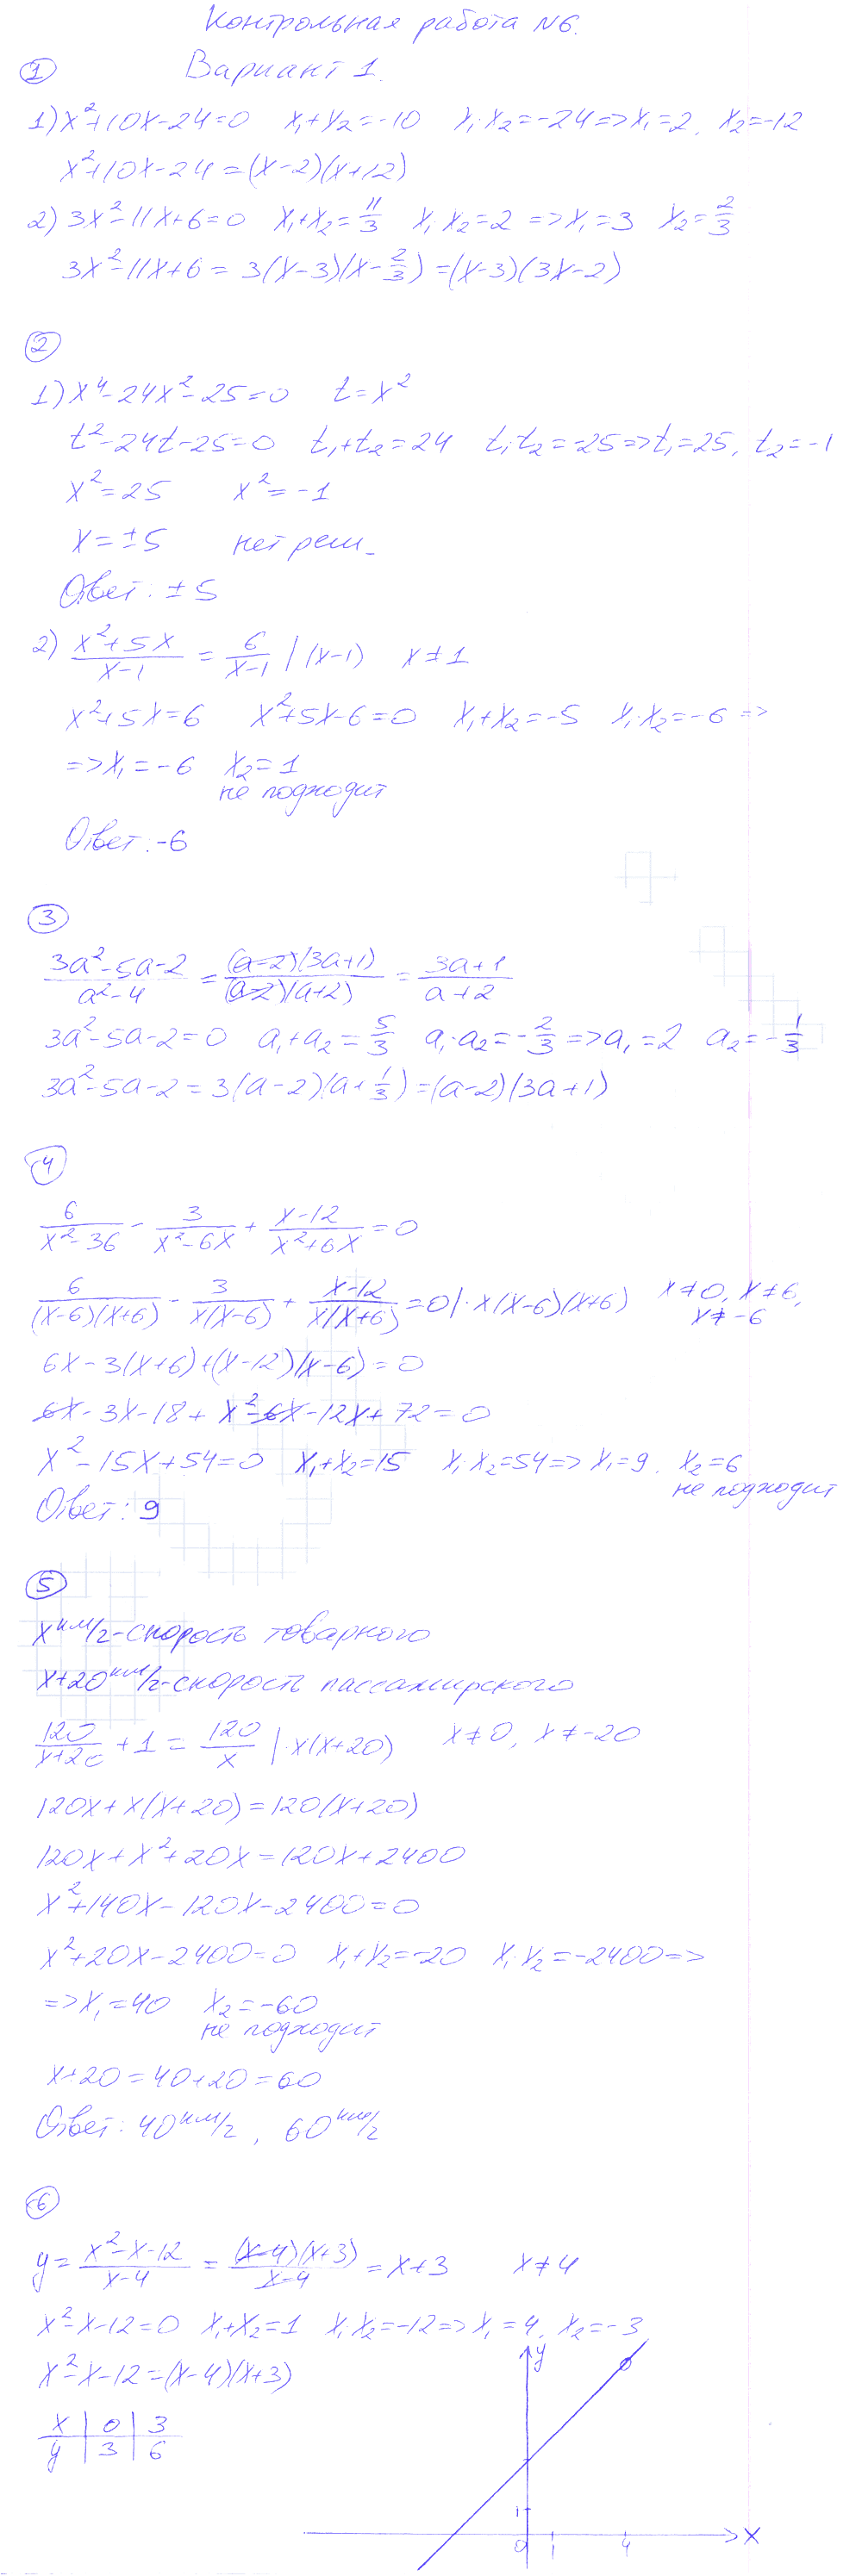 Контрольная работа №6.
Вариант 1.
①
1) x²+10x-24=0 x₁+x₂=-10 x₁·x₂=-24=>x₁=2, x₂=-12
x²+10x-24=(x-2)(x+12)
2) 3x²-11x+6=0 x₁+x₂=11/3 x₁·x₂=2 =>x₁=3 x₂=2/3
3x²-11x+6=3(x-3)(x-2/3)=(x-3)(3x-2)
②
1) x⁴-24x²-25=0 t=x²
t²-24t-25=0 t₁+t₂=24 t₁·t₂=-25=>t₁=25, t₂=-1
x²=25 x²=-1
x=±5 нет реш.
Ответ: ±5
2) (x²+5x)/(x-1) = 6/(x-1) |·(x-1) x≠1
x²+5x=6 x²+5x-6=0 x₁+x₂=-5 x₁·x₂=-6 =>
=>x₁=-6 x₂=1
не подходит
Ответ: -6
③
(3a²-5a-2)/(a²-4) = ((a-2)(3a+1))/((a-2)(a+2)) = (3a+1)/(a+2)
3a²-5a-2=0 a₁+a₂=5/3 a₁·a₂=-2/3=>a₁=2 a₂=-1/3
3a²-5a-2=3(a-2)(a+1/3)=(a-2)(3a+1)
④
6/(x²-36) - 3/(x²-6x) + (x-12)/(x²+6x) = 0
6/((x-6)(x+6)) - 3/(x(x-6)) + (x-12)/(x(x+6)) = 0 |·x(x-6)(x+6) x≠0, x≠6,
x≠-6
6x-3(x+6)+(x-12)(x-6)=0
6x-3x-18+x²-6x-12x+72=0
x²-15x+54=0 x₁+x₂=15 x₁·x₂=54=>x₁=9, x₂=6
не подходит
Ответ: 9
⑤
x км/г-скорость товарного
x+20 км/г-скорость пассажирского
120/(x+20) + 1 = 120/x |·x(x+20) x≠0, x≠-20
120x+x(x+20)=120(x+20)
120x+x²+20x=120x+2400
x²+140x-120x-2400=0
x²+20x-2400=0 x₁+x₂=-20 x₁·x₂=-2400=>
=>x₁=40 x₂=-60
не подходит
x+20=40+20=60
Ответ: 40 км/г, 60 км/г
⑥
y=(x²-x-12)/(x-4) = ((x-4)(x+3))/(x-4) = x+3 x≠4
x²-x-12=0 x₁+x₂=1 x₁·x₂=-12=>x₁=4, x₂=-3
x²-x-12=(x-4)(x+3)
x | 0 | 3
y | 3 | 6
y
1
0 1 4 x